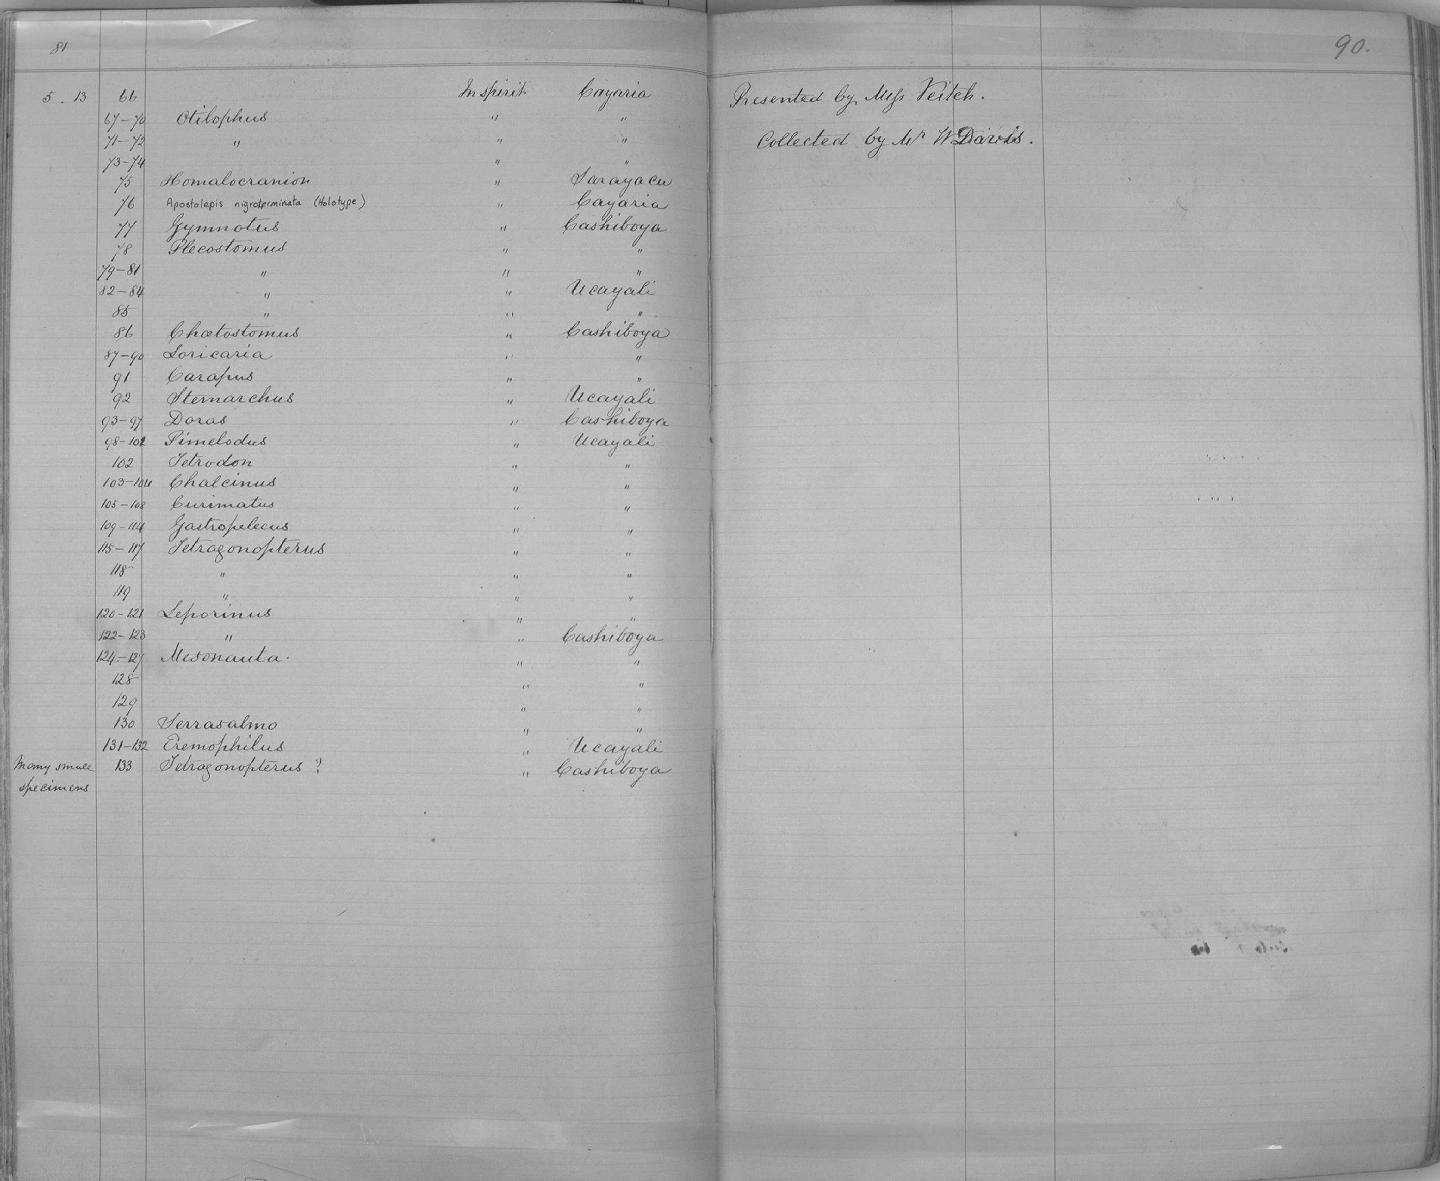 81
90.
5 . 13 66 In spirit Cayaria Presented by Mess Veitch.
67-70 Otilophus " "
71-72 " " " Collected by Mr W Davis.
73-74 " "
75 Homalocranion " Sarayacu
76 Apostolepis nigroterminata (Holotype) " Cayaria
77 Gymnotus " Cashiboya
78 Plecostomus " "
79-81 " " "
82-84 " " Ucayali
85 " " "
86 Chætostomus " Cashiboya
87-90 Loricaria " "
91 Carapus " "
92 Sternarchus " Ucayali
93-97 Doras " Cashiboya
98-101 Pimelodus " Ucayali
102 Tetrodon " "
103-104 Chalcinus " "
105-108 Curimatus " "
109-114 Gastropelecus " "
115-117 Tetragonopterus " "
118 " " "
119 " " "
120-121 Leporinus " "
122-123 " " Cashiboya
124-127 Mesonauta. " "
128 " "
129 " "
130 Serrasalmo " "
131-132 Eremophilus " Ucayali
Many small 133 Tetragonopterus ? " Cashiboya
specimens